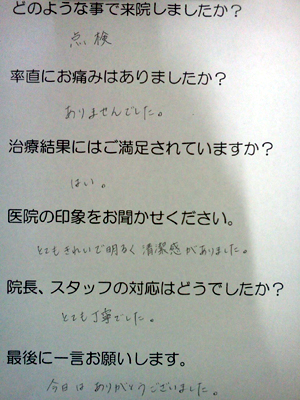 どのような事で来院しましたか？
点検
率直にお痛みはありましたか？
ありませんでした。
治療結果にはご満足されていますか？
はい。
医院の印象をお聞かせください。
とてもきれいで明るく清潔感がありました。
院長、スタッフの対応はどうでしたか？
とても丁寧でした。
最後に一言お願いします。
今日はありがとうございました。